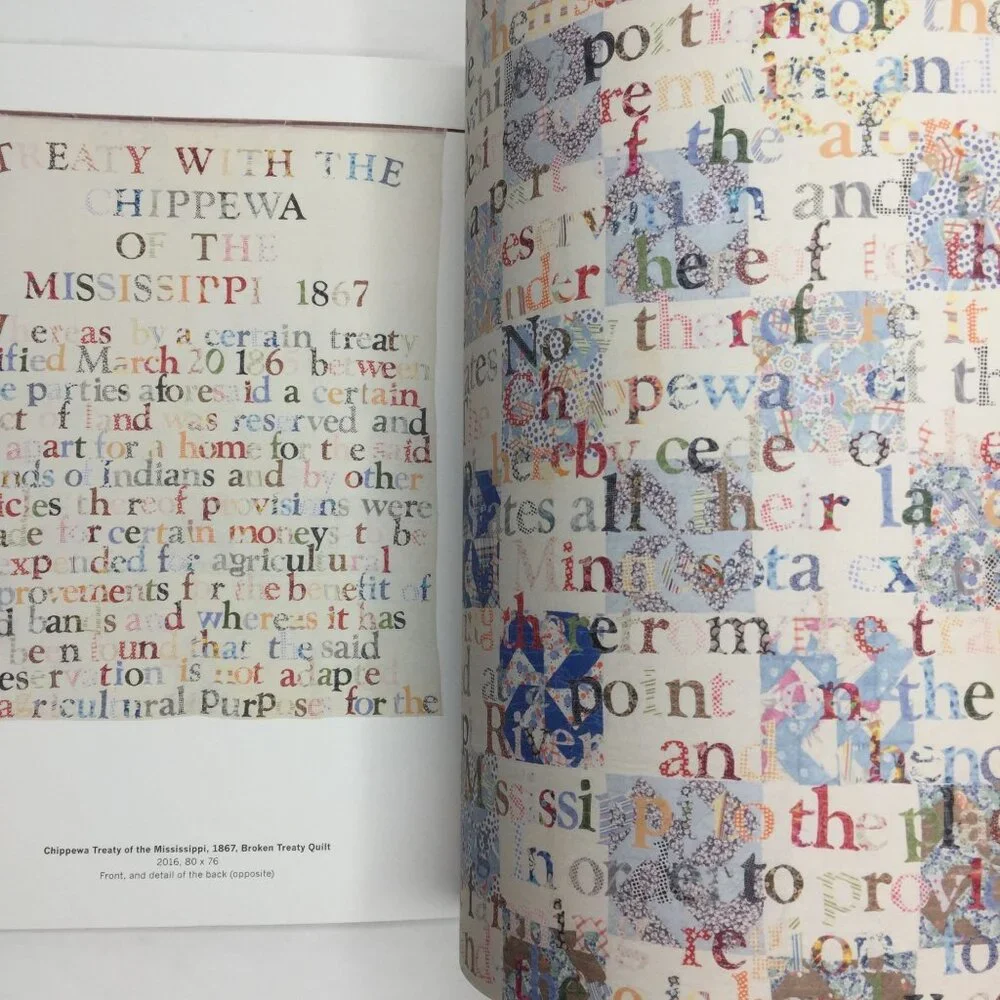 TREATY WITH THE
CHIPPEWA
OF THE
MISSISSIPPI 1867
ereas by a certain treaty
ified March 20 186 between
e parties aforesaid a certain
ct of land was reserved and
apart for a home for the said
nds of Indians and by other
icles thereof provisions were
ade for certain moneys to be
expended for agricultural
provements for the benefit of
d bands and whereas it has
been found that the said
reservation is not adapted
agricultural Purposes for the
Chippewa Treaty of the Mississippi, 1867, Broken Treaty Quilt
2016, 80 x 76
Front, and detail of the back (opposite)
portion of the
remain and
of the afores
apart
reservation and
under hereof to th
Now therefore it
Chippewa of th
hereby cede to the
ates all their la
Minnesota exce
therefrom the tra
point in the
River and thence
Mississippi to the pla
in order to provi